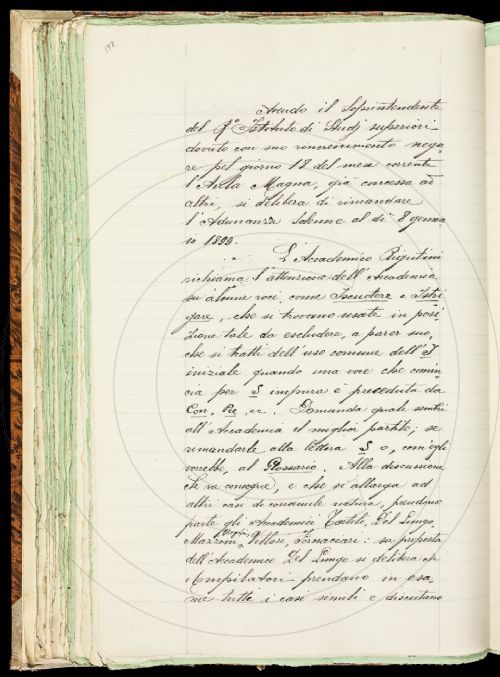 198
Avendo il Soprintendente
del R.° Istituto di Studj superiori
dovuto con suo rincrescimento nega-
re pel giorno 18 del mese corrente
l'Aula Magna, già concessa ad
altri, si delibera di rimandare
l'Adunanza solenne al dì 8 genna-
io 1899.
L'Accademico Rigutini
richiama l'attenzione dell'Accademia
su alcune voci, come Iscuotere e Istri-
gare, che si trovano usate in posi-
zione tale da escludere, a parer suo,
che si tratti dell'uso comune dell'I
iniziale quando una voce che comin-
cia per S impura è preceduta da
Con, Per, ec. Domanda quale sembri
all'Accademia il miglior partito; se
rimandarle alla lettera S o, com'egli
vorrebbe, al Glossario. Alla discussione
che ne consegue, e che si allarga ad
altri casi di consimile natura, prendono
parte gli Accademici Tortoli, Del Lungo,
Mazzoni, Vitelli, Fornaciari: su proposta
dell'Accademico Del Lungo si delibera che
i Compilatori prendano in esa-
me tutti i casi simili e discutano